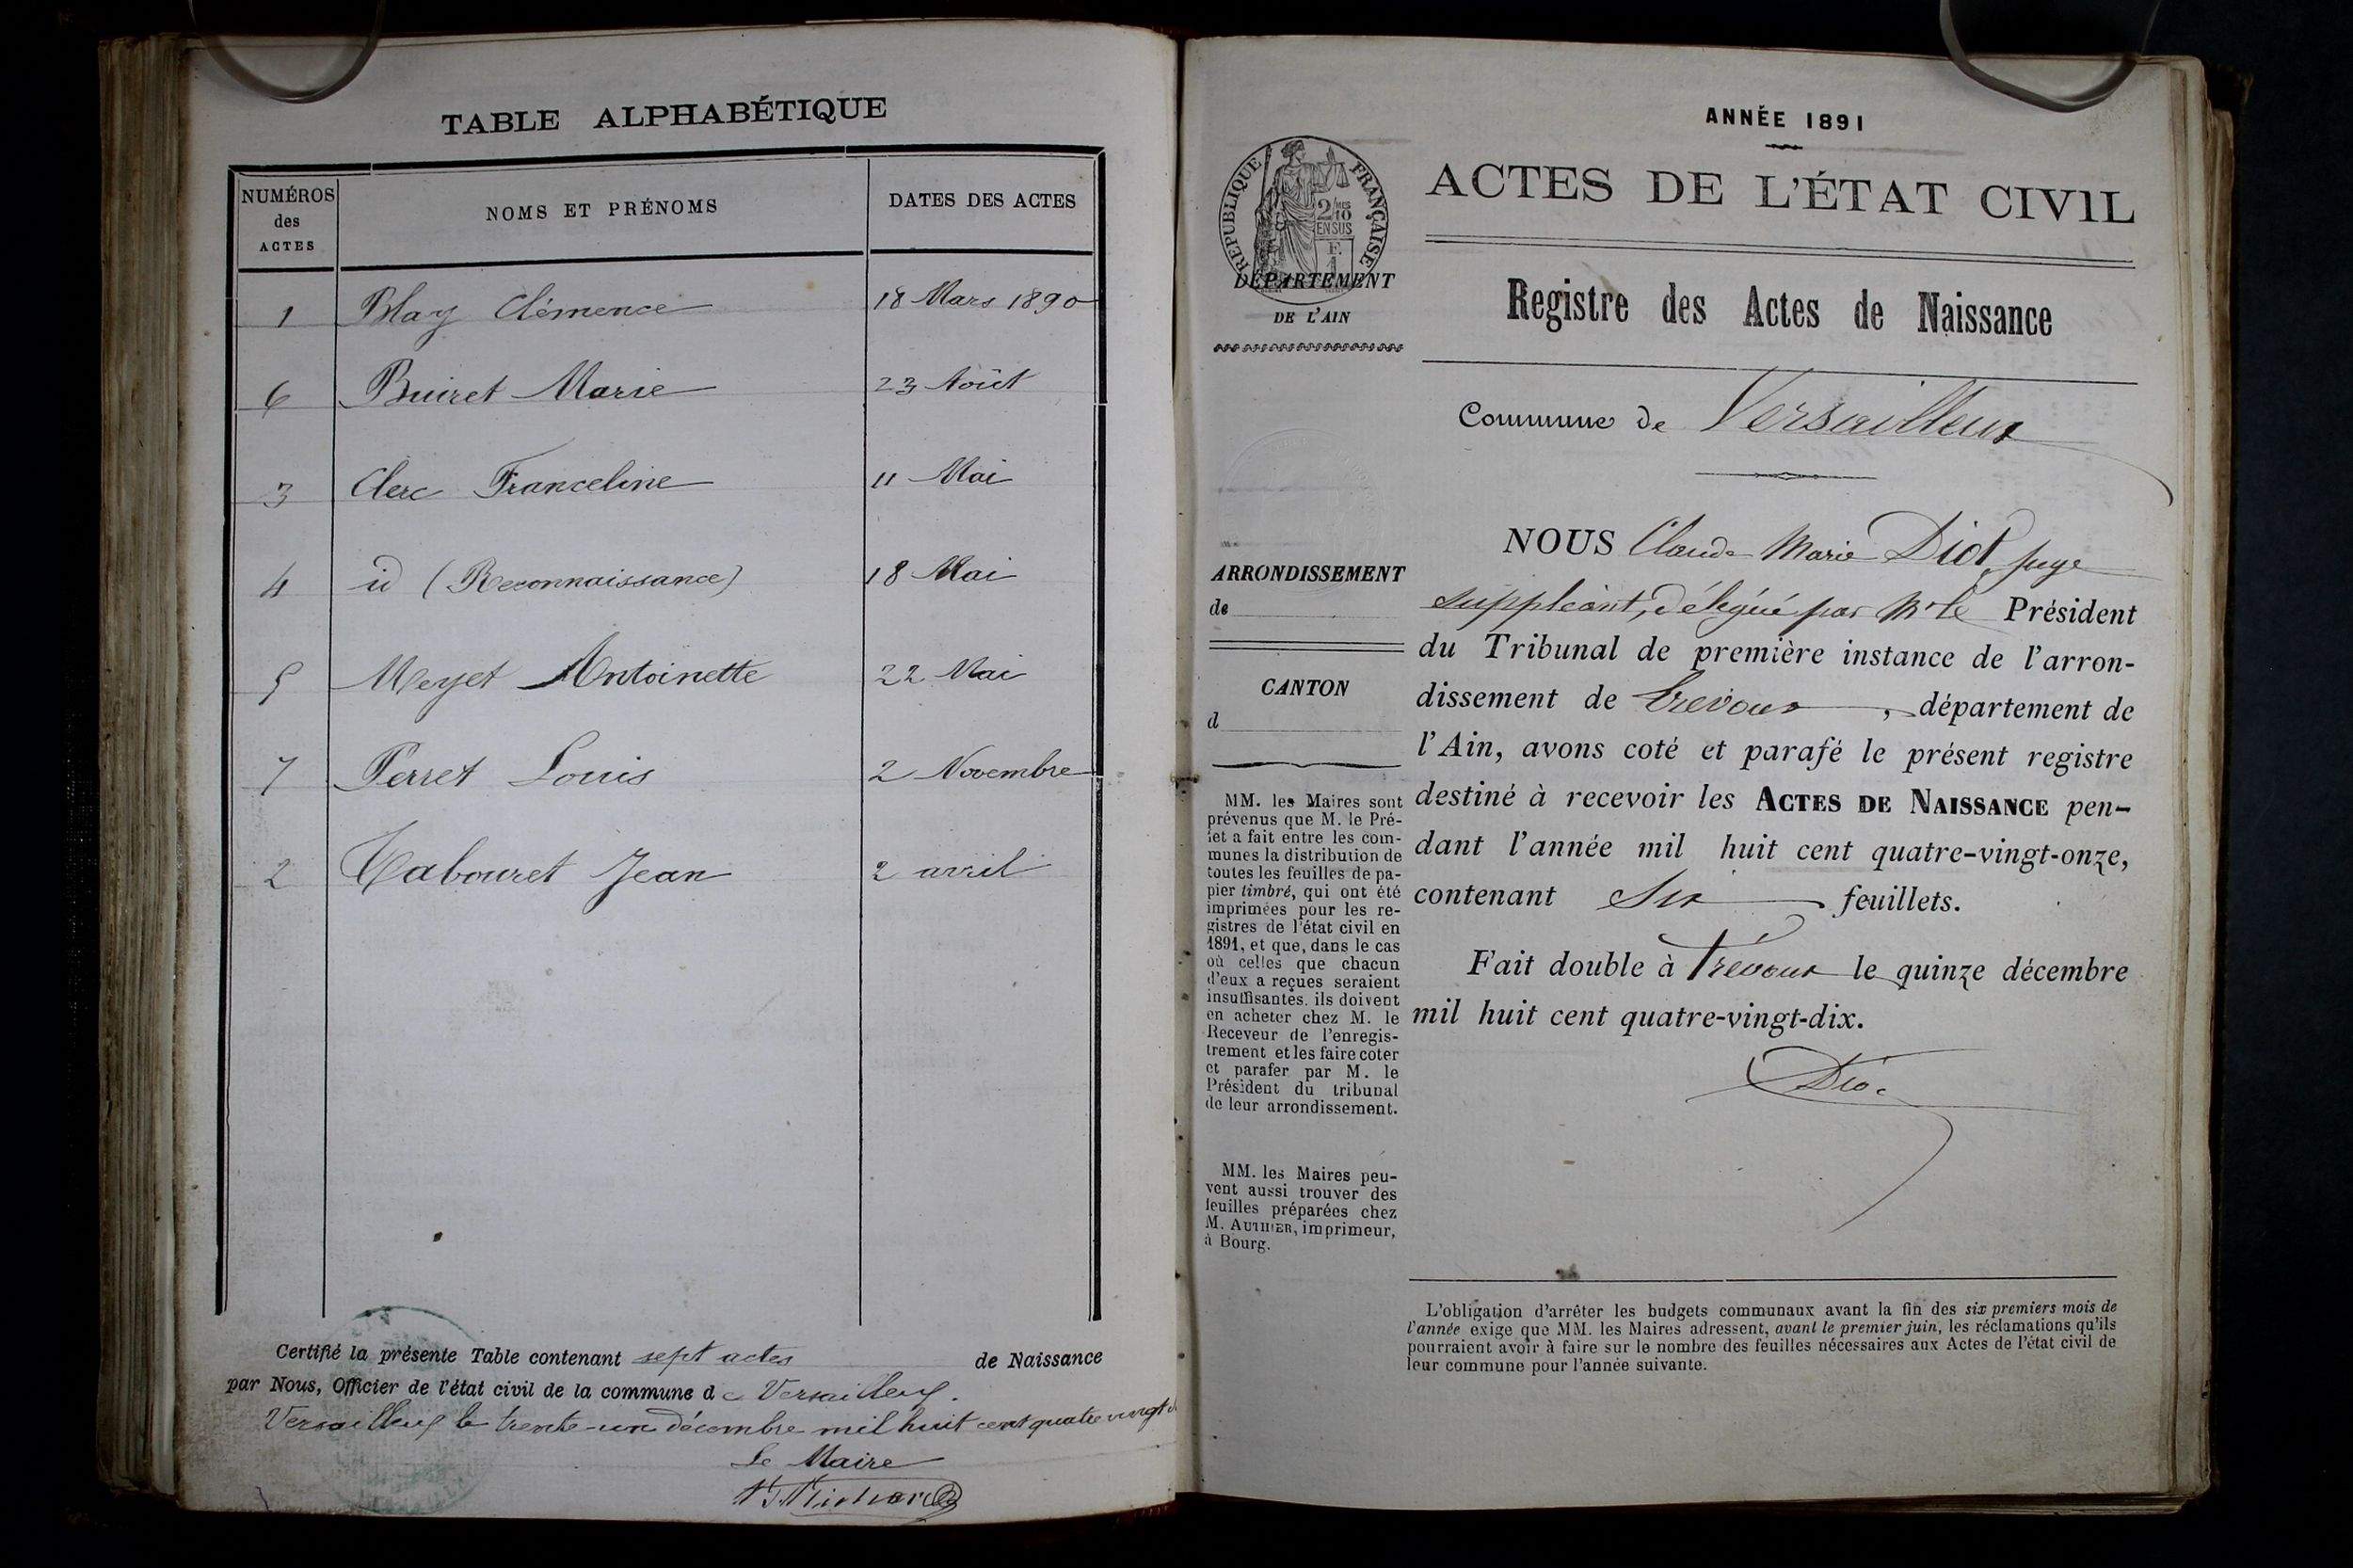 TABLE ALPHABÉTIQUE
NUMÉROS des ACTES
NOMS ET PRÉNOMS
DATES DES ACTES
1 Blay Clémence 18 Mars 1890
6 Buiret Marie 23 Août
3 Clerc Franceline 11 Mai
4 id (Reconnaissance) 18 Mai
5 Meyet Antoinette 22 Mai
7 Perret Louis 2 Novembre
2 Tabouret Jean 2 avril
Certifié la présente Table contenant sept actes de Naissance
par Nous, Officier de l'état civil de la commune de Versailleux.
Versailleux le trente-un décembre mil huit cent quatre vingt
Le Maire
ANNÉE 1891
ACTES DE L'ÉTAT CIVIL
RÉPUBLIQUE FRANÇAISE
2/10
EN SUS
DÉPARTEMENT
DE L'AIN
Registre des Actes de Naissance
Commune de Versailleux
ARRONDISSEMENT
de
CANTON
d
MM. les Maires sont
prévenus que M. le Pré-
fet a fait entre les com-
munes la distribution de
toutes les feuilles de pa-
pier timbré, qui ont été
imprimées pour les re-
gistres de l'état civil en
1891, et que, dans le cas
où celles que chacun
d'eux a reçues seraient
insuffisantes, ils doivent
en acheter chez M. le
Receveur de l'enregis-
trement et les faire coter
et parafer par M. le
Président du tribunal
de leur arrondissement.
MM. les Maires peu-
vent aussi trouver des
feuilles préparées chez
M. AUTHIER, imprimeur,
à Bourg.
NOUS Claude Marie Diot, juge
suppléant, délégué par Mr le Président
du Tribunal de première instance de l'arron-
dissement de Trévoux, département de
l'Ain, avons coté et parafé le présent registre
destiné à recevoir les ACTES DE NAISSANCE pen-
dant l'année mil huit cent quatre-vingt-onze,
contenant Six feuillets.
Fait double à Trévoux le quinze décembre
mil huit cent quatre-vingt-dix.
Diot
L'obligation d'arrêter les budgets communaux avant la fin des six premiers mois de
l'année exige que MM. les Maires adressent, avant le premier juin, les réclamations qu'ils
pourraient avoir à faire sur le nombre des feuilles nécessaires aux Actes de l'état civil de
leur commune pour l'année suivante.